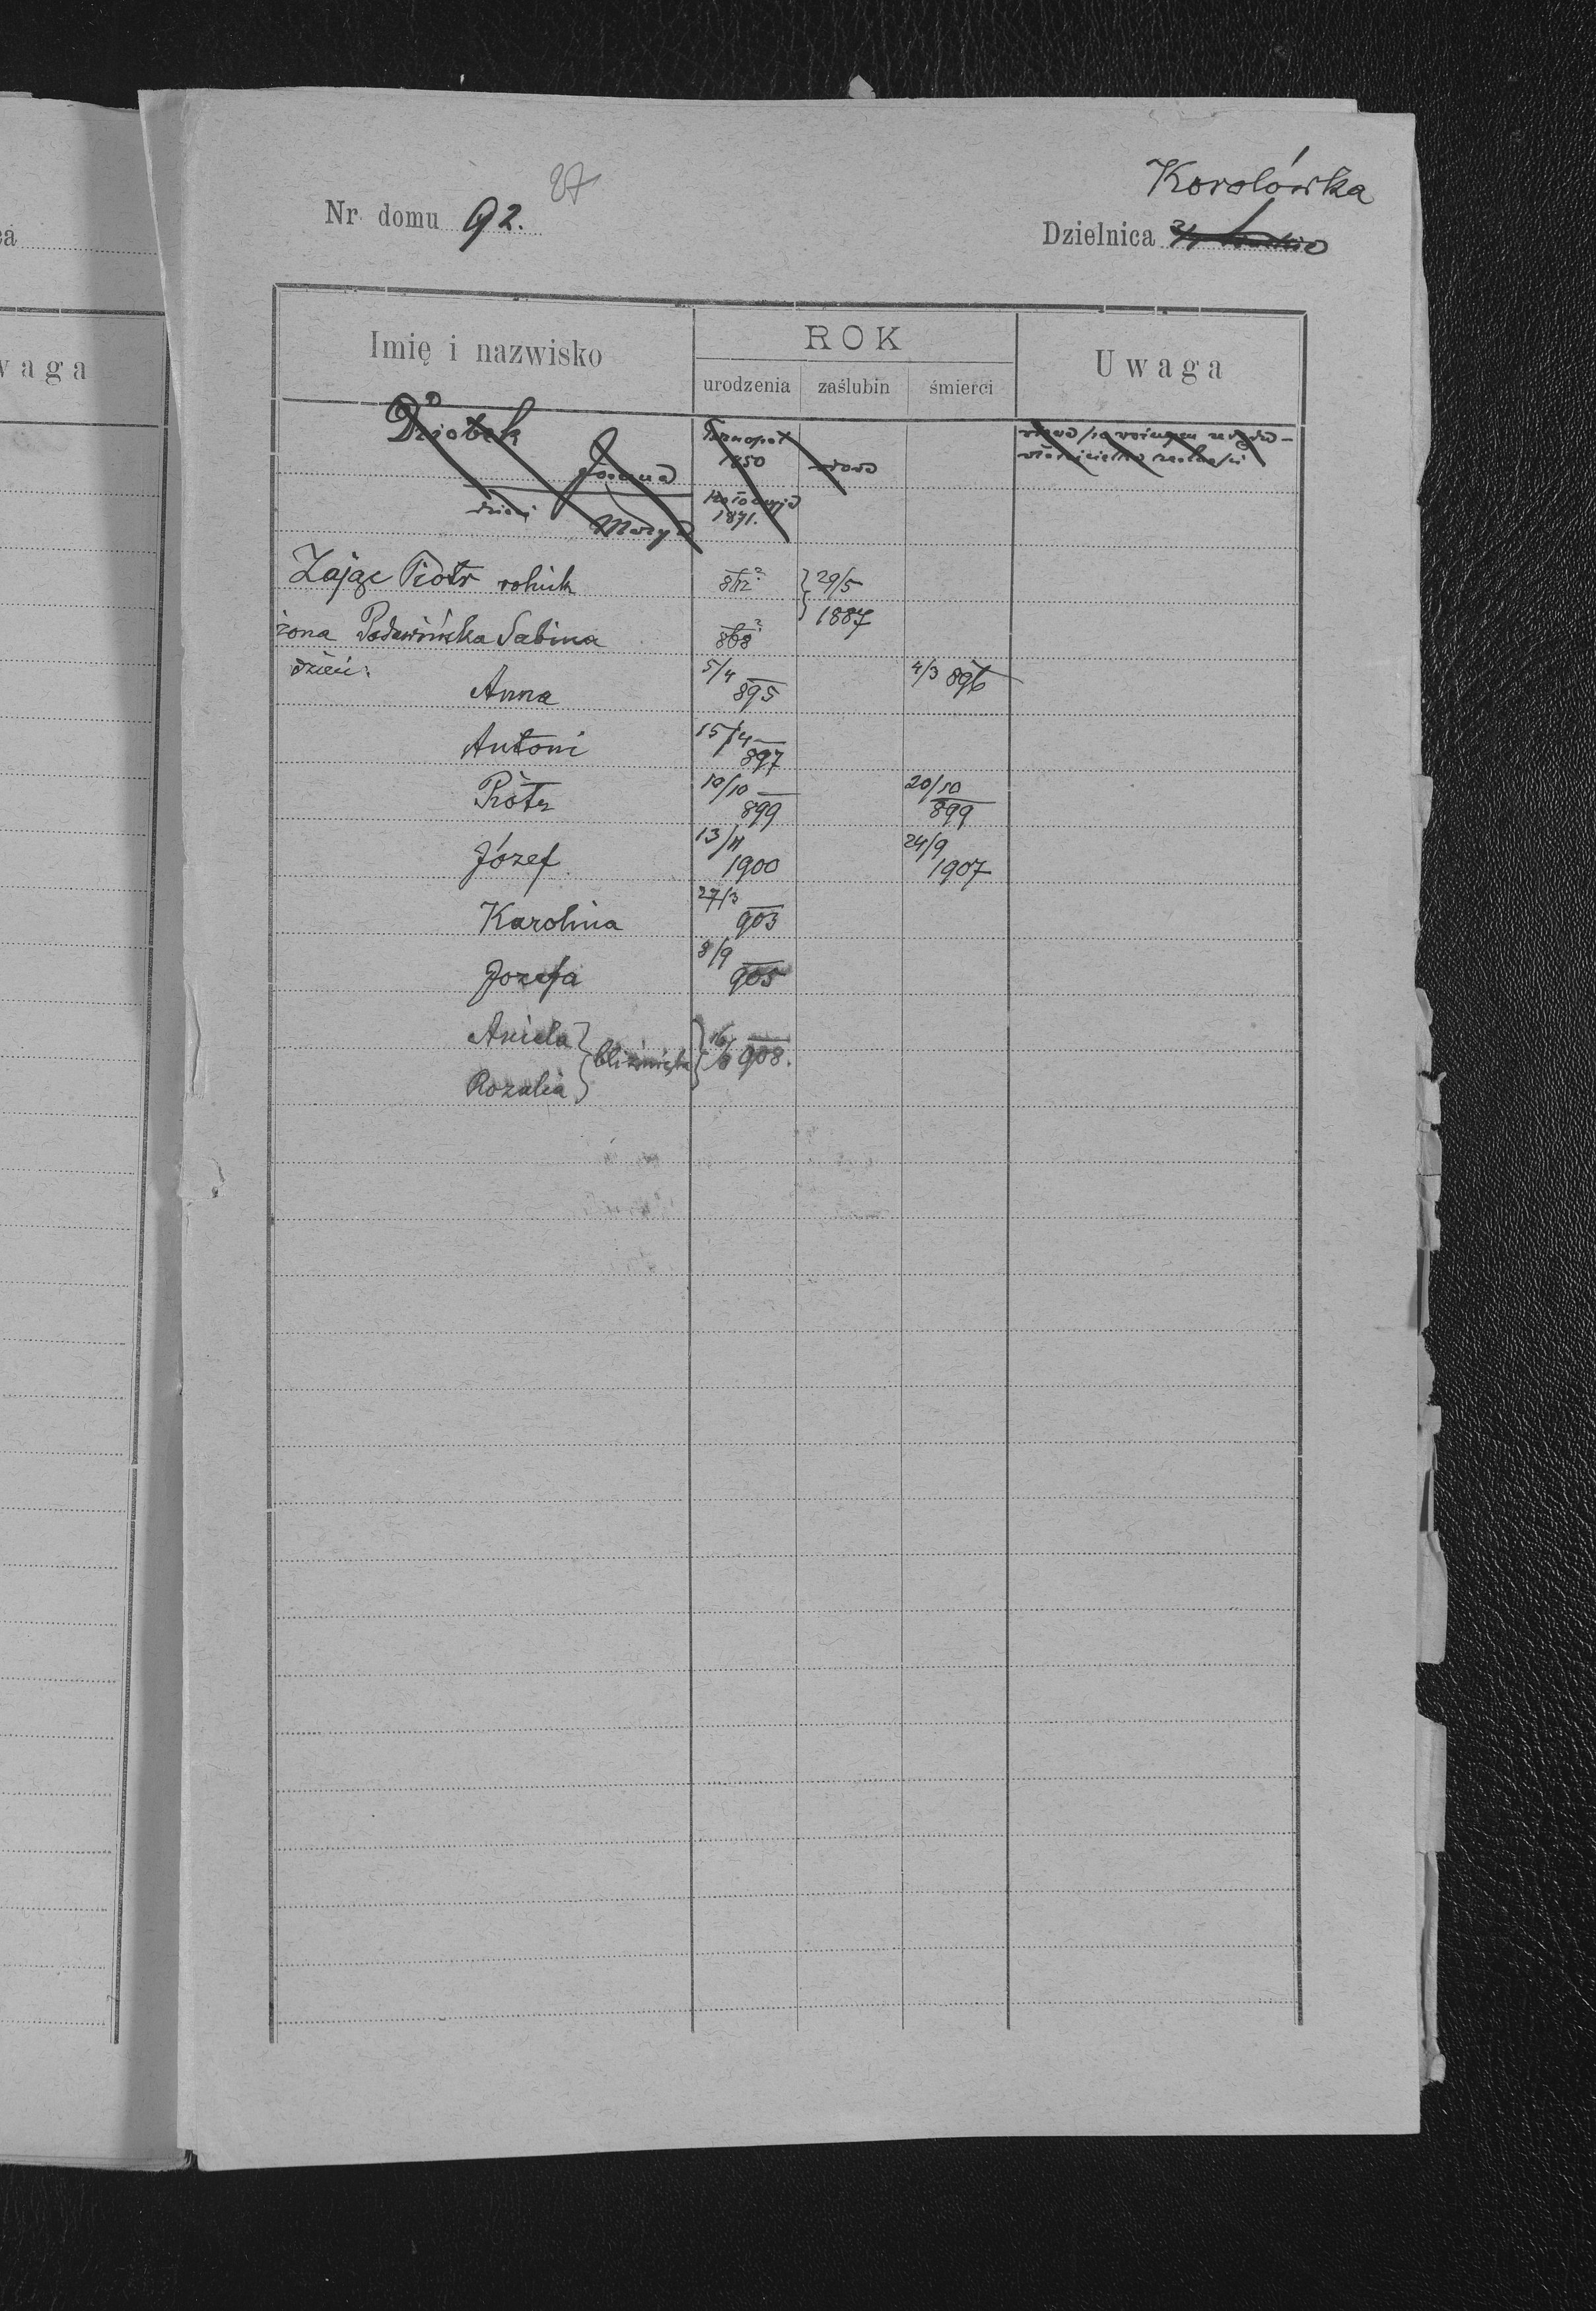 27
Korolówka
Nr domu 92.
Dzielnica
ca
Imię i nazwisko
ROK
urodzenia zaślubin śmierci
Uwaga
waga
Dziobek Tarnopol
Joanna 1850 wdowa
dzieci Kołomyja
Marya 1871.
Zając Piotr rolnik 29/5
1887
żona Sabina 868?
dzieci:
Anna 5/4 895 4/3 896
Antoni 15/4 897
Piotr 10/10 899 20/10 899
Józef 13/11 1900 24/9 1907
Karolina 27/3 903
Józefa 8/9 905
Aniela
bliźnięta 16/6 908.
Rozalia